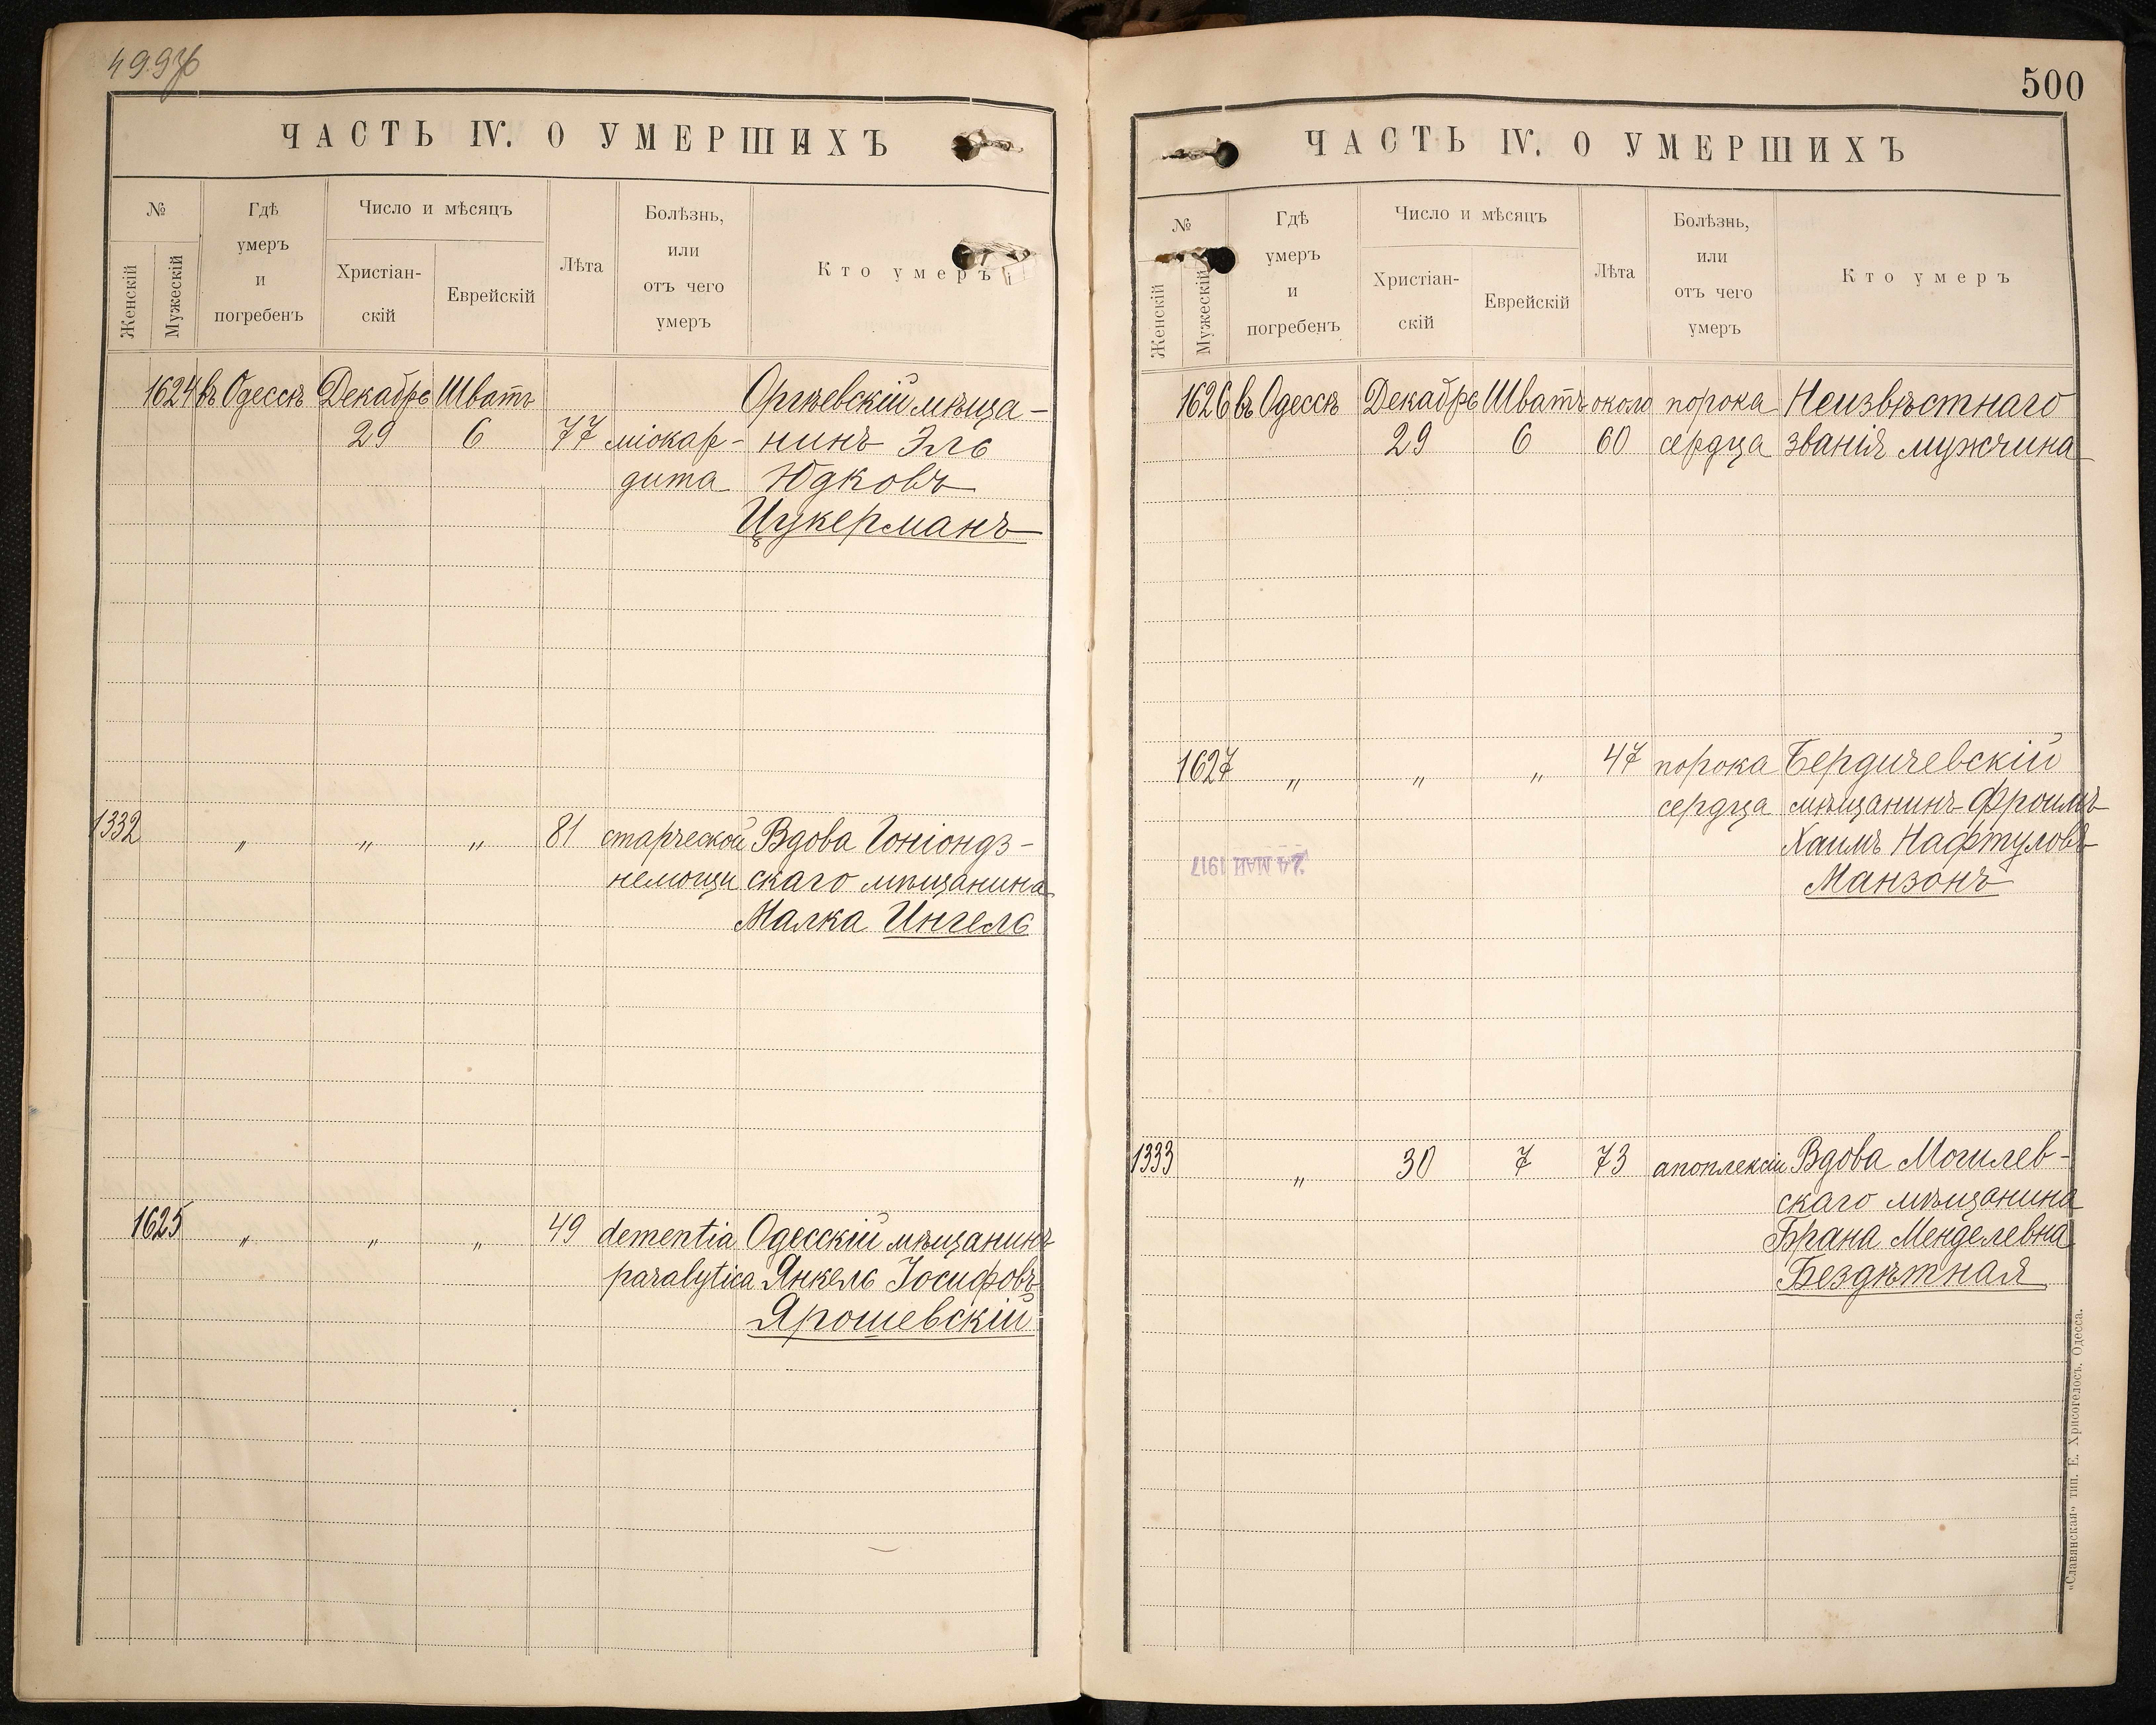 499об
ЧАСТЬ IV. О УМЕРШИХЪ
№
Женскій
Мужескій
Гдѣ
умеръ
и
погребенъ
Число и мѣсяцъ
Христіан-
скій
Еврейскій
Лѣта
Болѣзнь,
или
отъ чего
умеръ
Кто умеръ
1624 въ Одессѣ Декабрь Шватъ Оргѣевскій мѣща-
29 6 77 міокар- нинъ Эль
дита Юдковъ
Цукерманъ
1332 „ „ „ 81 старческой Вдова Гоніондз-
немощи скаго мѣщанина
Малка Ингель
1625 „ „ „ 49 dementia Одесскій мѣщанинъ
paralytica Янкель Іосифовъ
Ярошевскій
500
ЧАСТЬ IV. О УМЕРШИХЪ
№
Женскій
Мужескій
Гдѣ
умеръ
и
погребенъ
Число и мѣсяцъ
Христіан-
скій
Еврейскій
Лѣта
Болѣзнь,
или
отъ чего
умеръ
Кто умеръ
1626 въ Одессѣ Декабрь Шватъ около порока Неизвѣстнаго
29 6 60 сердца званія мужчина
1627 „ „ „ 47 порока Бердичевскій
сердца мѣщанинъ Фроимъ
Хаимъ Нафтуловъ
Манзонъ
24 МАЙ 1917
1333 „ 30 7 73 апоплексіи Вдова Могилев-
скаго мѣщанина
Брана Менделевна
Бездѣтная
«Славянская» тип. Е. Хрисогелосъ. Одесса.